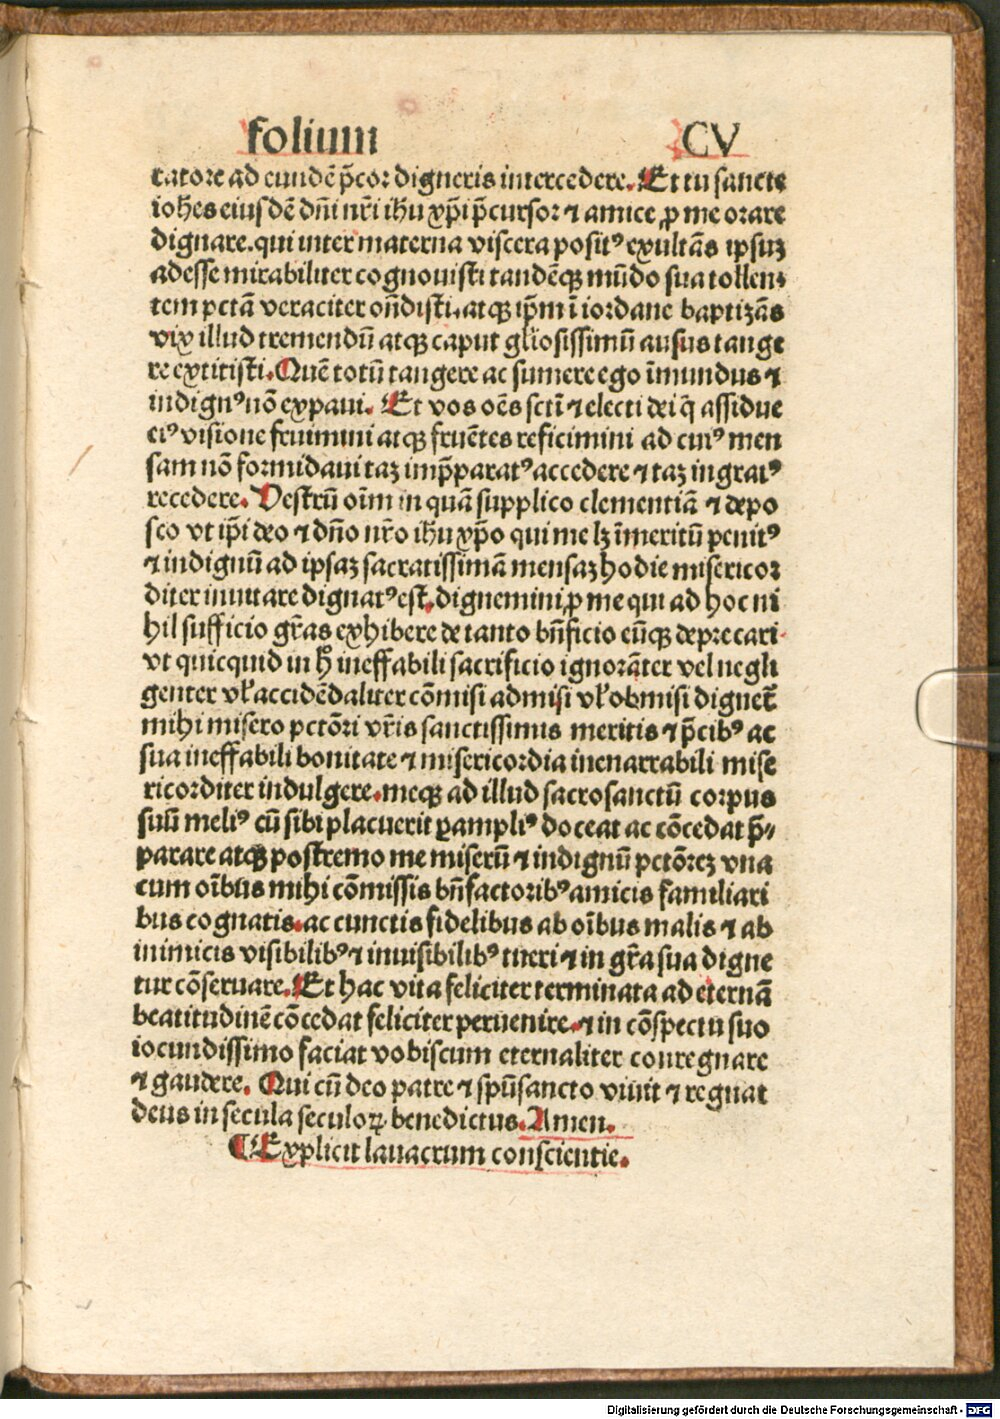 folium CV
catore ad eundē p̄cor digneris intercedere. Et tu sancte
iohes eiusdē dn̄i nr̄i ihu xp̄i p̄cursor ⁊ amice, ꝓ me orare
dignare. qui inter materna viscera posit⁹ exultās ipsuꝫ
adesse mirabiliter cognouisti tandēqꝫ mūdo sua tollen⸗
tem pctā veraciter on̄disti, atqꝫ ip̄m ī iordane baptizās
vix illud tremendū atqꝫ caput gl̄iosissimū ausus tange
re extitisti. Quē totū tangere ac sumere ego īmundus ⁊
indign⁹ nō expaui. Et vos oēs sctī ⁊ electi dei q̄ assidue
ei⁹ visione fruimini atqꝫ fruētes reficimini ad cui⁹ men
sam nō formidaui taꝫ imp̄parat⁹ accedere ⁊ taꝫ ingrat⁹
recedere. Vestrū oīm in quā supplico clementiā ⁊ depo
sco vt ip̄i deo ⁊ dn̄o nr̄o ihu xp̄o qui me lꝫ īmeritū penit⁹
⁊ indignū ad ipsaꝫ sacratissimā mensaꝫ hodie misericor
diter inuitare dignat⁹ est, dignemini ꝓ me qui ad hoc ni
hil sufficio gr̄as exhibere de tanto bn̄ficio eūqꝫ deprecari
vt quicquid in h̄ ineffabili sacrificio ignorāter vel negli
genter vl̓ accidēdaliter cōmisi admisi vl̓ obmisi dignet̄
mihi misero pctōri vr̄is sanctissimis meritis ⁊ p̄cib⁹ ac
sua ineffabili bonitate ⁊ misericordia inenarrabili mise
ricorditer indulgere. meqꝫ ad illud sacrosanctū corpus
suū meli⁹ cū sibi placuerit ꝑampli⁹ doceat ac cōcedat p̄⸗
parare atqꝫ postremo me miserū ⁊ indignū pctōreꝫ vna
cum oībus mihi cōmissis bn̄factorib⁹ amicis familiari
bus cognatis. ac cunctis fidelibus ab oībus malis ⁊ ab
inimicis visibilib⁹ ⁊ inuisibilib⁹ tueri ⁊ in gr̄a sua digne
tur cōseruare. Et hac vita feliciter terminata ad eternā
beatitudinē cōcedat feliciter peruenire. ⁊ in cōspectu suo
iocundissimo faciat vobiscum eternaliter conregnare
⁊ gaudere. Qui cū deo patre ⁊ spūsancto viuit ⁊ regnat
deus in secula seculoꝝ benedictus. Amen.
¶ Explicit lauacrum conscientie.
Digitalisierung gefördert durch die Deutsche Forschungsgemeinschaft - DFG